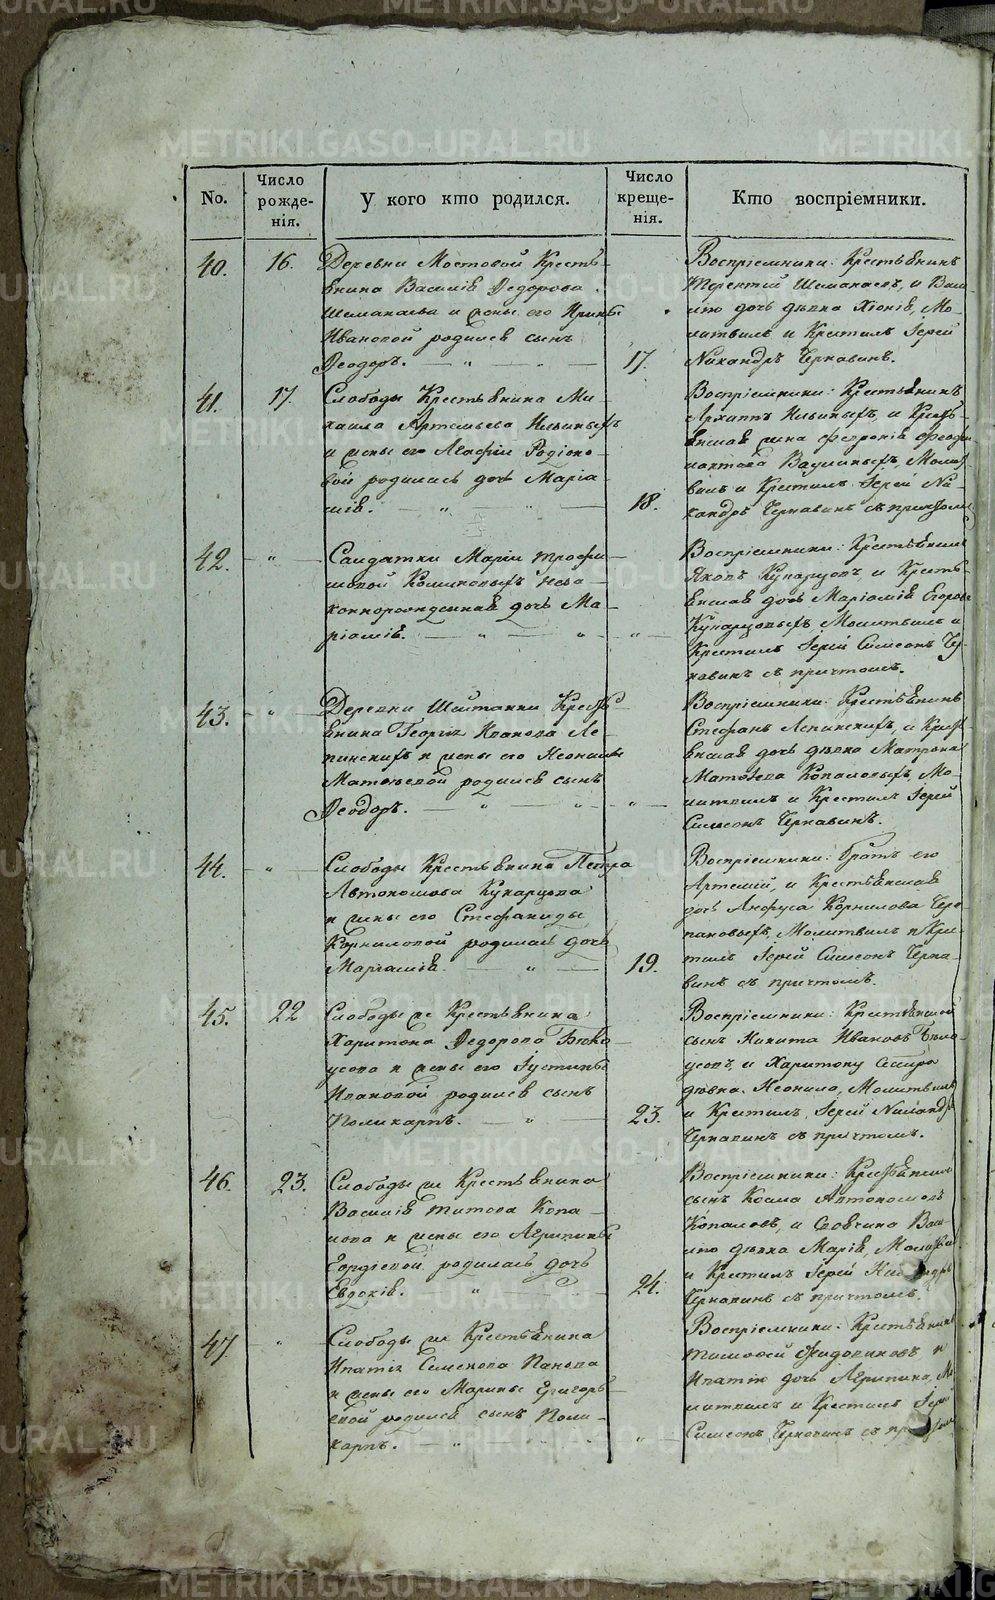 METRIKI.GASO-URAL.RU
No.
Число рожде-нія.
У кого кто родился.
Число креще-нія.
Кто воспріемники.
40.
16.
Деревни Мостовой Кресть-
янина Василія Ѳедорова
Шеманаева и жены его Ирины
Ивановой родился сынъ
Ѳеодоръ.
17.
Воспріемники: Крестьянинъ
Терентій Шеманаевъ, и Васи-
лію дочь дѣвка Хіонія, Мо-
литвилъ и Крестилъ Іерей
Никандръ Чернавинъ.
41.
17.
Слободы Крестьянина Ми-
хаила Артемьева Ильиныхъ
и жены его Агафіи Родіоно-
вой родилась дочь Маріа-
мія.
18.
Воспріемники: Крестьянинъ
Архиппъ Ильиныхъ, и Кресть-
янская жена Февронія
Молит-
вилъ и Крестилъ Іерей Ни-
кандръ Чернавинъ съ причтомъ
42.
"
Салдатки Маріи Трофи-
мовой неза-
коннорожденная дочь Ма-
ріамія.
"
Воспріемники: Крестьянинъ
Яковъ Кукарцовъ, и Кресть-
янская дочь Маріамія Егорова
Кукарцовыхъ Молитвилъ и
Крестилъ Іерей Симеонъ Чер-
навинъ съ причтомъ.
43.
"
Деревни Шайтанки Кресть-
янина Георгія Иванова Ле-
пинскихъ и жены его Неонилы
Матвѣевой родился сынъ
Ѳеодоръ.
"
Воспріемники: Крестьянинъ
Стефанъ Лепинскихъ, и Кресть-
янская дочь дѣвка Матрона
Матвѣева Копаловыхъ, Мо-
литвилъ и Крестилъ Іерей
Симеонъ Чернавинъ.
44.
"
Слободы Крестьянина Петра
Автономова Кукарцова
и жены его Стефаниды
Корниловой родилась дочь
Маріамія.
19.
Воспріемники: братъ его
Артемій, и Крестьянская
дочь Анфуса Корнилова Чере-
пановыхъ, Молитвилъ и Кре-
стилъ Іерей Симеонъ Черна-
винъ съ причтомъ.
45.
22
Слободы же Крестьянина
Харитона Ѳедорова Бѣло-
усова и жены его Іустины
Ивановой родился сынъ
Поликарпъ.
23.
Воспріемники: Крестьянской
сынъ Никита Ивановъ Бѣло-
усовъ, и Харитону сестра
дѣвка Неонила, Молитвилъ
и Крестилъ Іерей Никандръ
Чернавинъ съ причтомъ.
46.
23.
Слободы же Крестьянина
Василія Титова Копа-
лова и жены его Агрипины
Гордѣевой родилась дочь
Евдокія.
24.
Воспріемники: Крестьянской
сынъ Косма Автономовъ
Копаловъ, и Васи-
лію дѣвка Марія, Молитвилъ
и Крестилъ Іерей Никандръ
Чернавинъ съ причтомъ.
47
"
Слободы же Крестьянина
Ипатія Семенова Панова
и жены его Марины Григорь-
евой родился сынъ Поли-
карпъ.
"
Воспріемники: Крестьянинъ
Тимофей и
Ипатію дочь Агрипина, Мо-
литвилъ и Крестилъ Іерей
Симеонъ Чернавинъ съ причтомъ